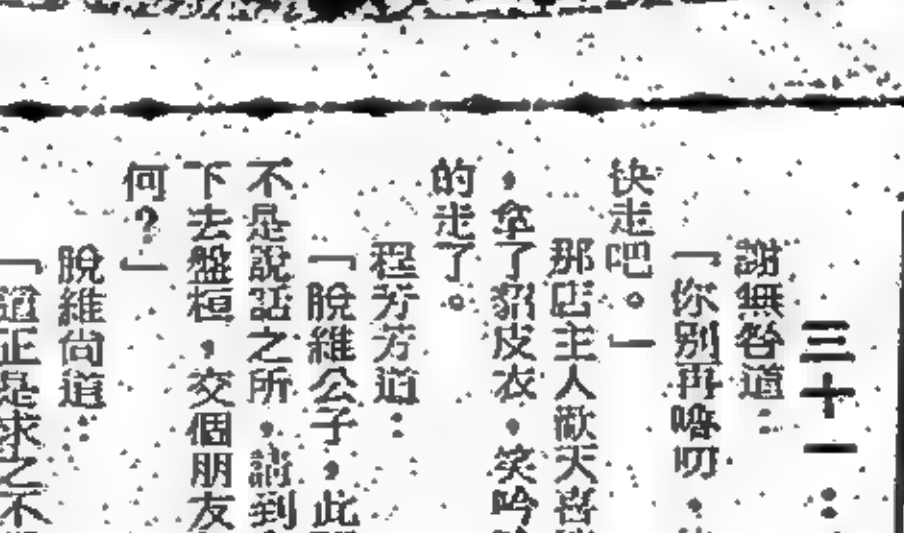 三十一：
謝無咎道：
「你別再嚕叨，
快走吧。」
那店主人歡天喜
，拿了貂皮衣，笑吟
的走了。
程芳芳道：
「脫維公子，此
不是說話之所，請到
下去盤桓，交個朋友
何？」
脫維尚道：
「這正是求之不